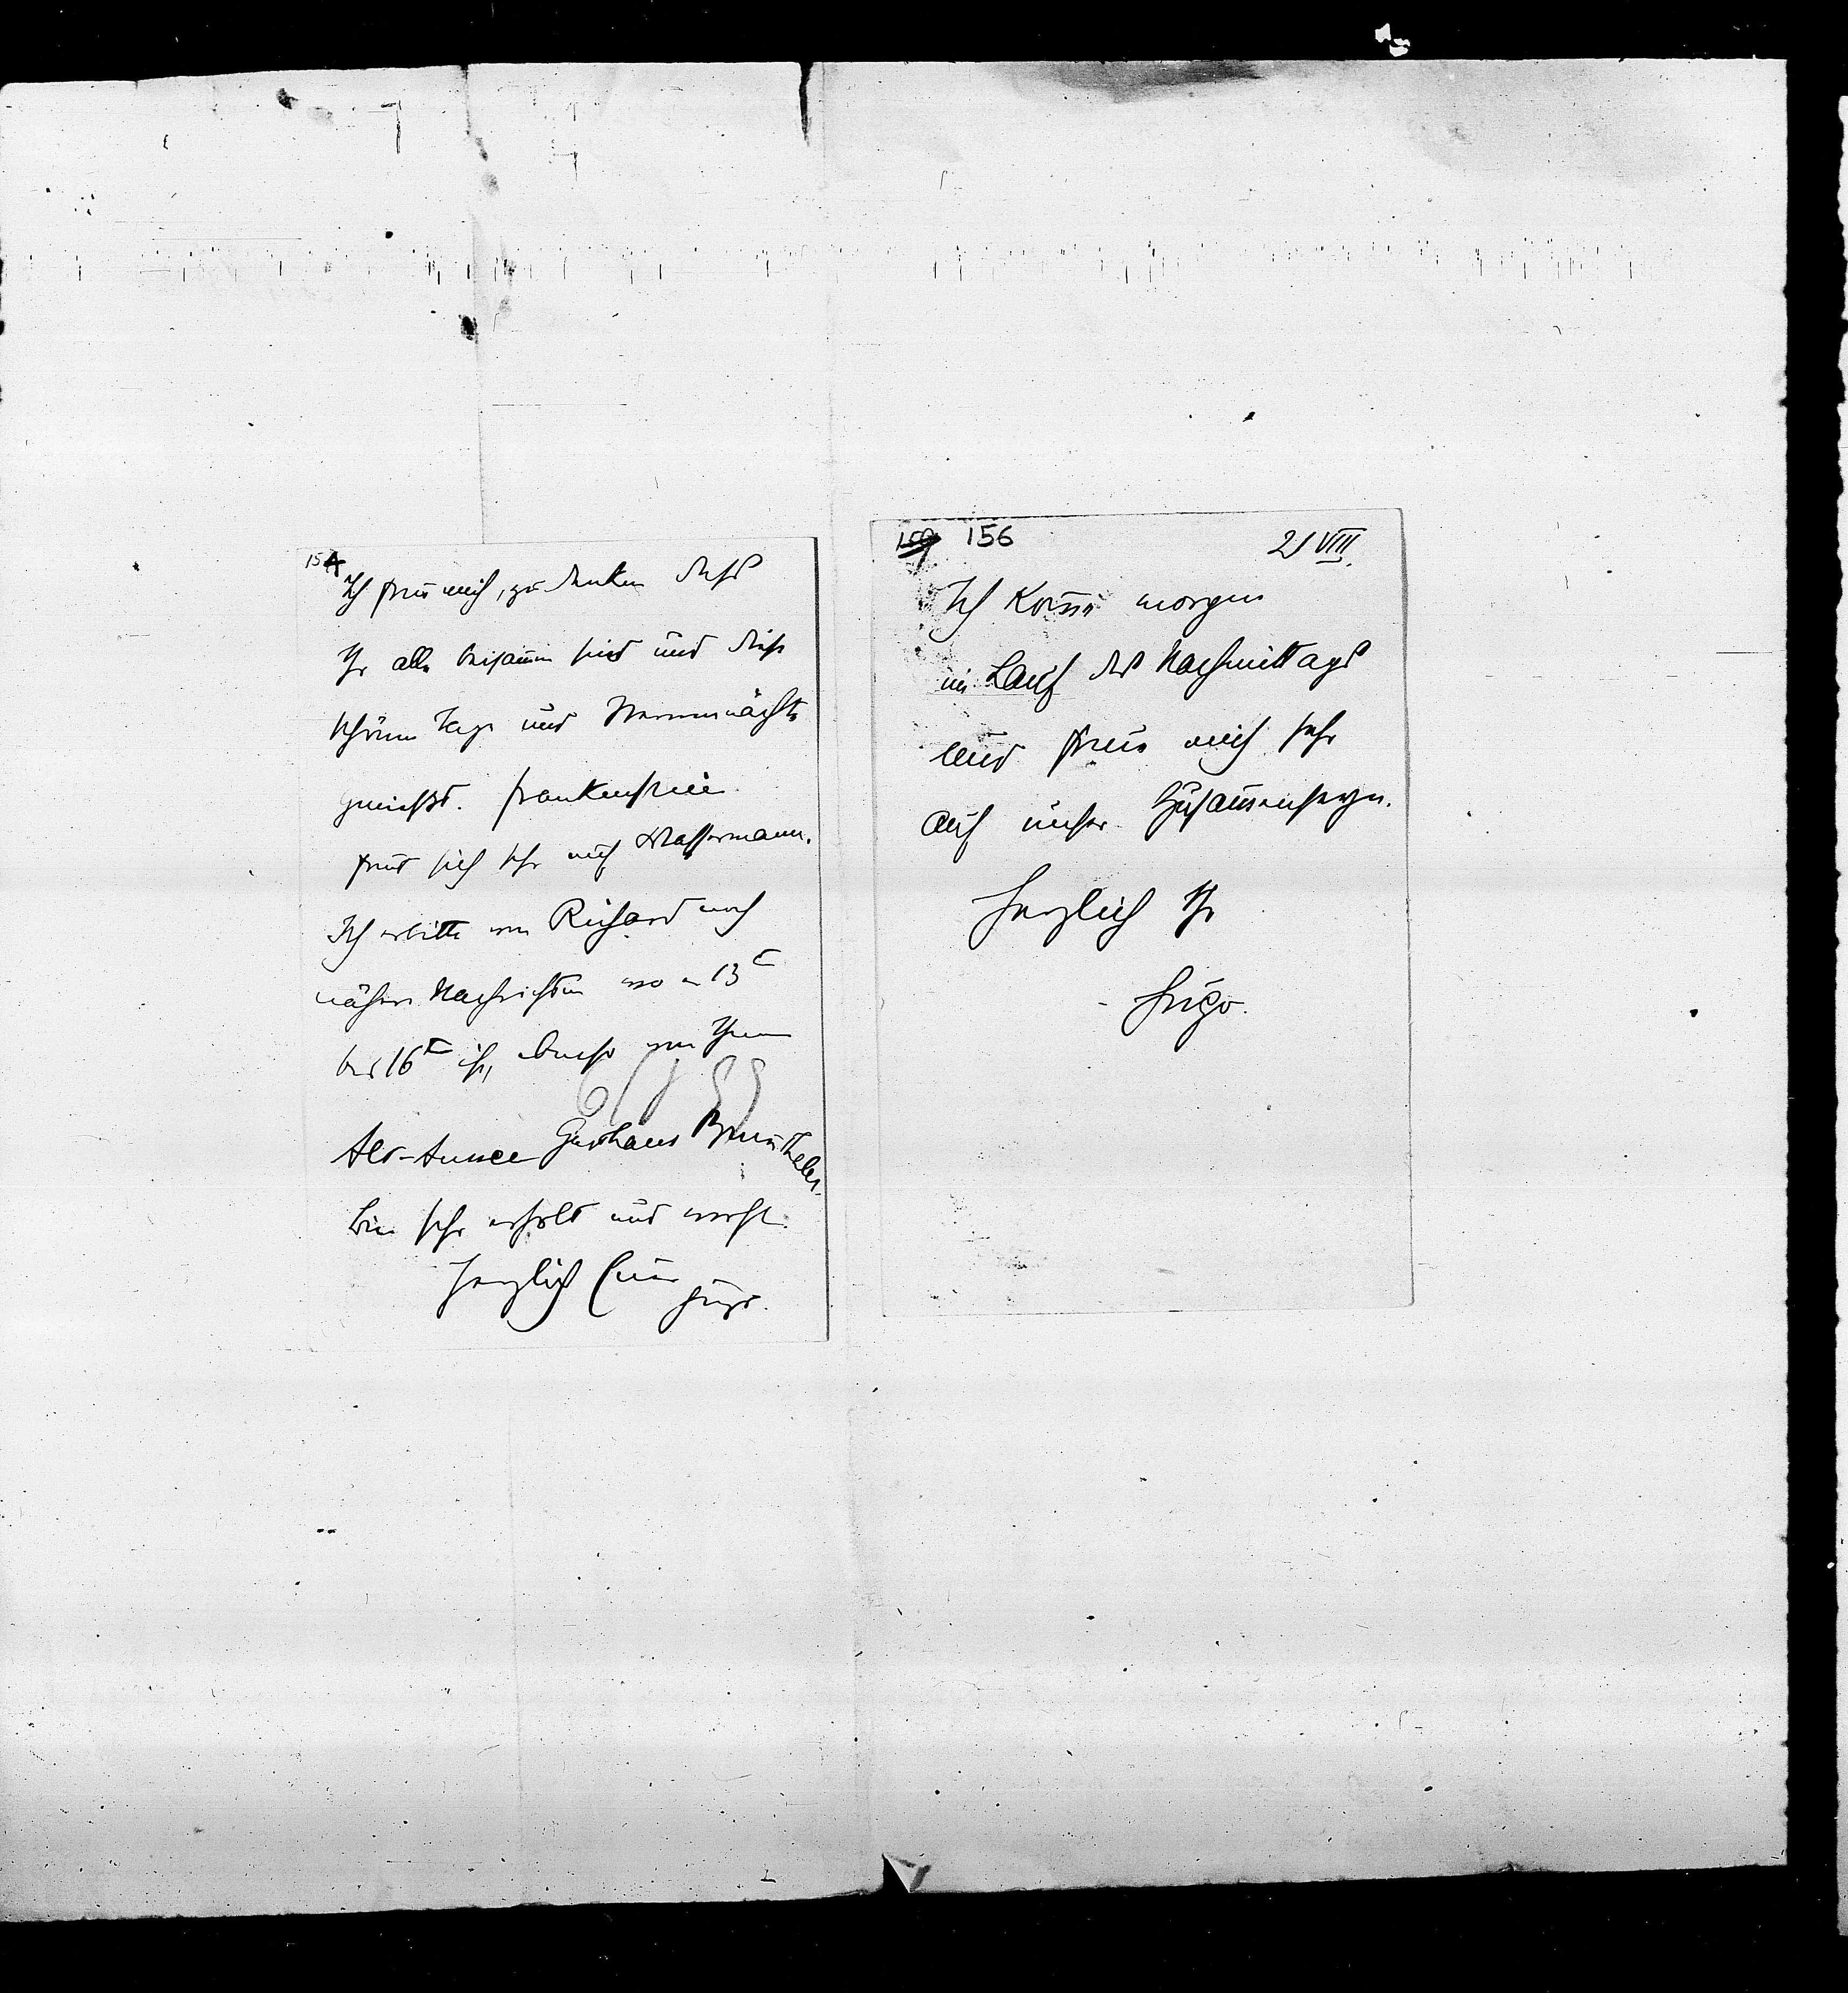 154
Ich freu mich, zu denken dass
Ihr alle beisammen seid und diese
schönen Tage und Sternennächte
genießt. Frankenstein
freut sich sehr auf Wassermann.
Ich erbitte von Richard noch
nähere Nachrichten wo er 13te
bis 16te ist, ebenso von Ihnen
Alt-Aussee Gasthaus
Bin sehr erholt und wohl.
Herzlich Euer
Hugo.
156
21 VIII.
Ich komme morgen
im Lauf des Nachmittags
und freue mich sehr
auf unser Zusammenseyn.
Herzlich Ihr
Hugo.